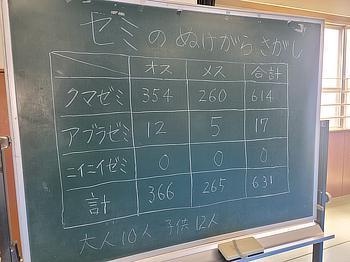 セミのぬけがらさがし
オス メス 合計
クマゼミ 354 260 614
アブラゼミ 12 5 17
ニイニイゼミ 0 0 0
計 366 265 631
大人10人 子供12人